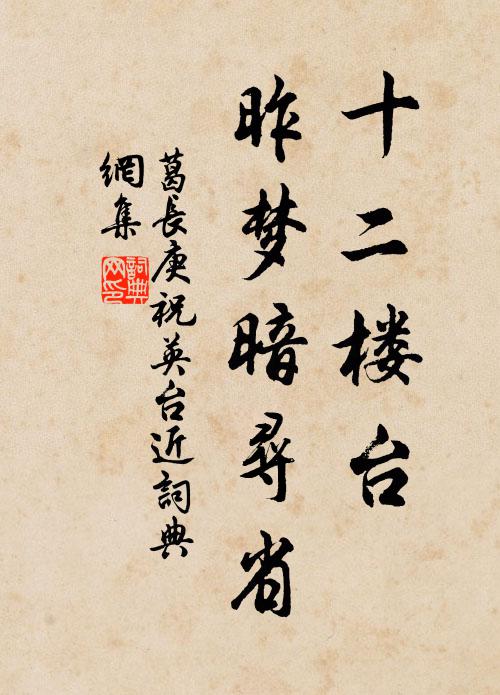 十二楼台
昨梦暗尋省
葛長庚祝英台近詞典
網集
詞典
网印